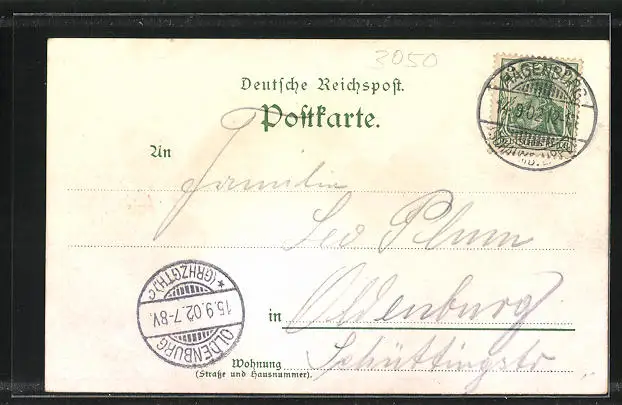 3050
Deutsche Reichspost.
Postkarte.
HAGENBURG
An Familie
Leo Blum
in Oldenburg
Wohnung Schüttingstr
(Straße und Hausnummer).
OLDENBURG
15.9.02.7-8V.
*(GRHZGTH.)c